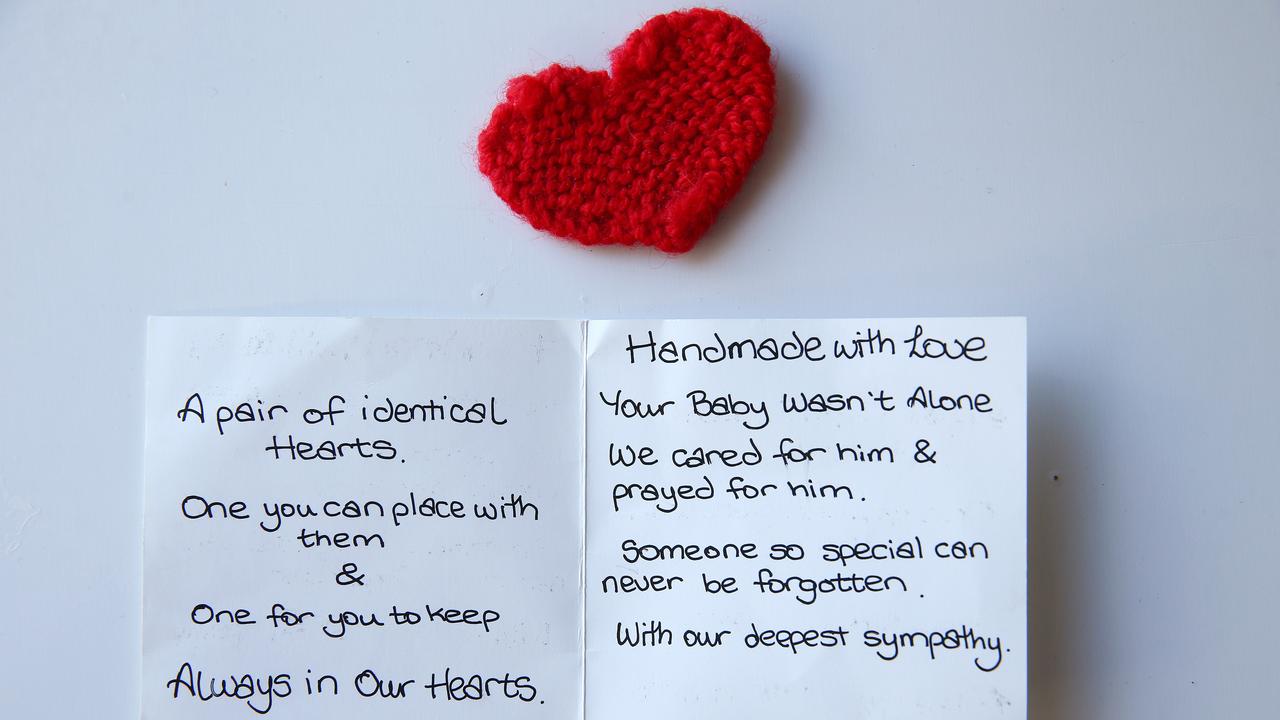 A pair of identical
Hearts.
One you can place with
them
&
One for you to keep
Always in Our Hearts.
Handmade with Love
Your Baby Wasn't Alone
We cared for him &
prayed for him.
Someone so special can
never be forgotten.
With our deepest sympathy.